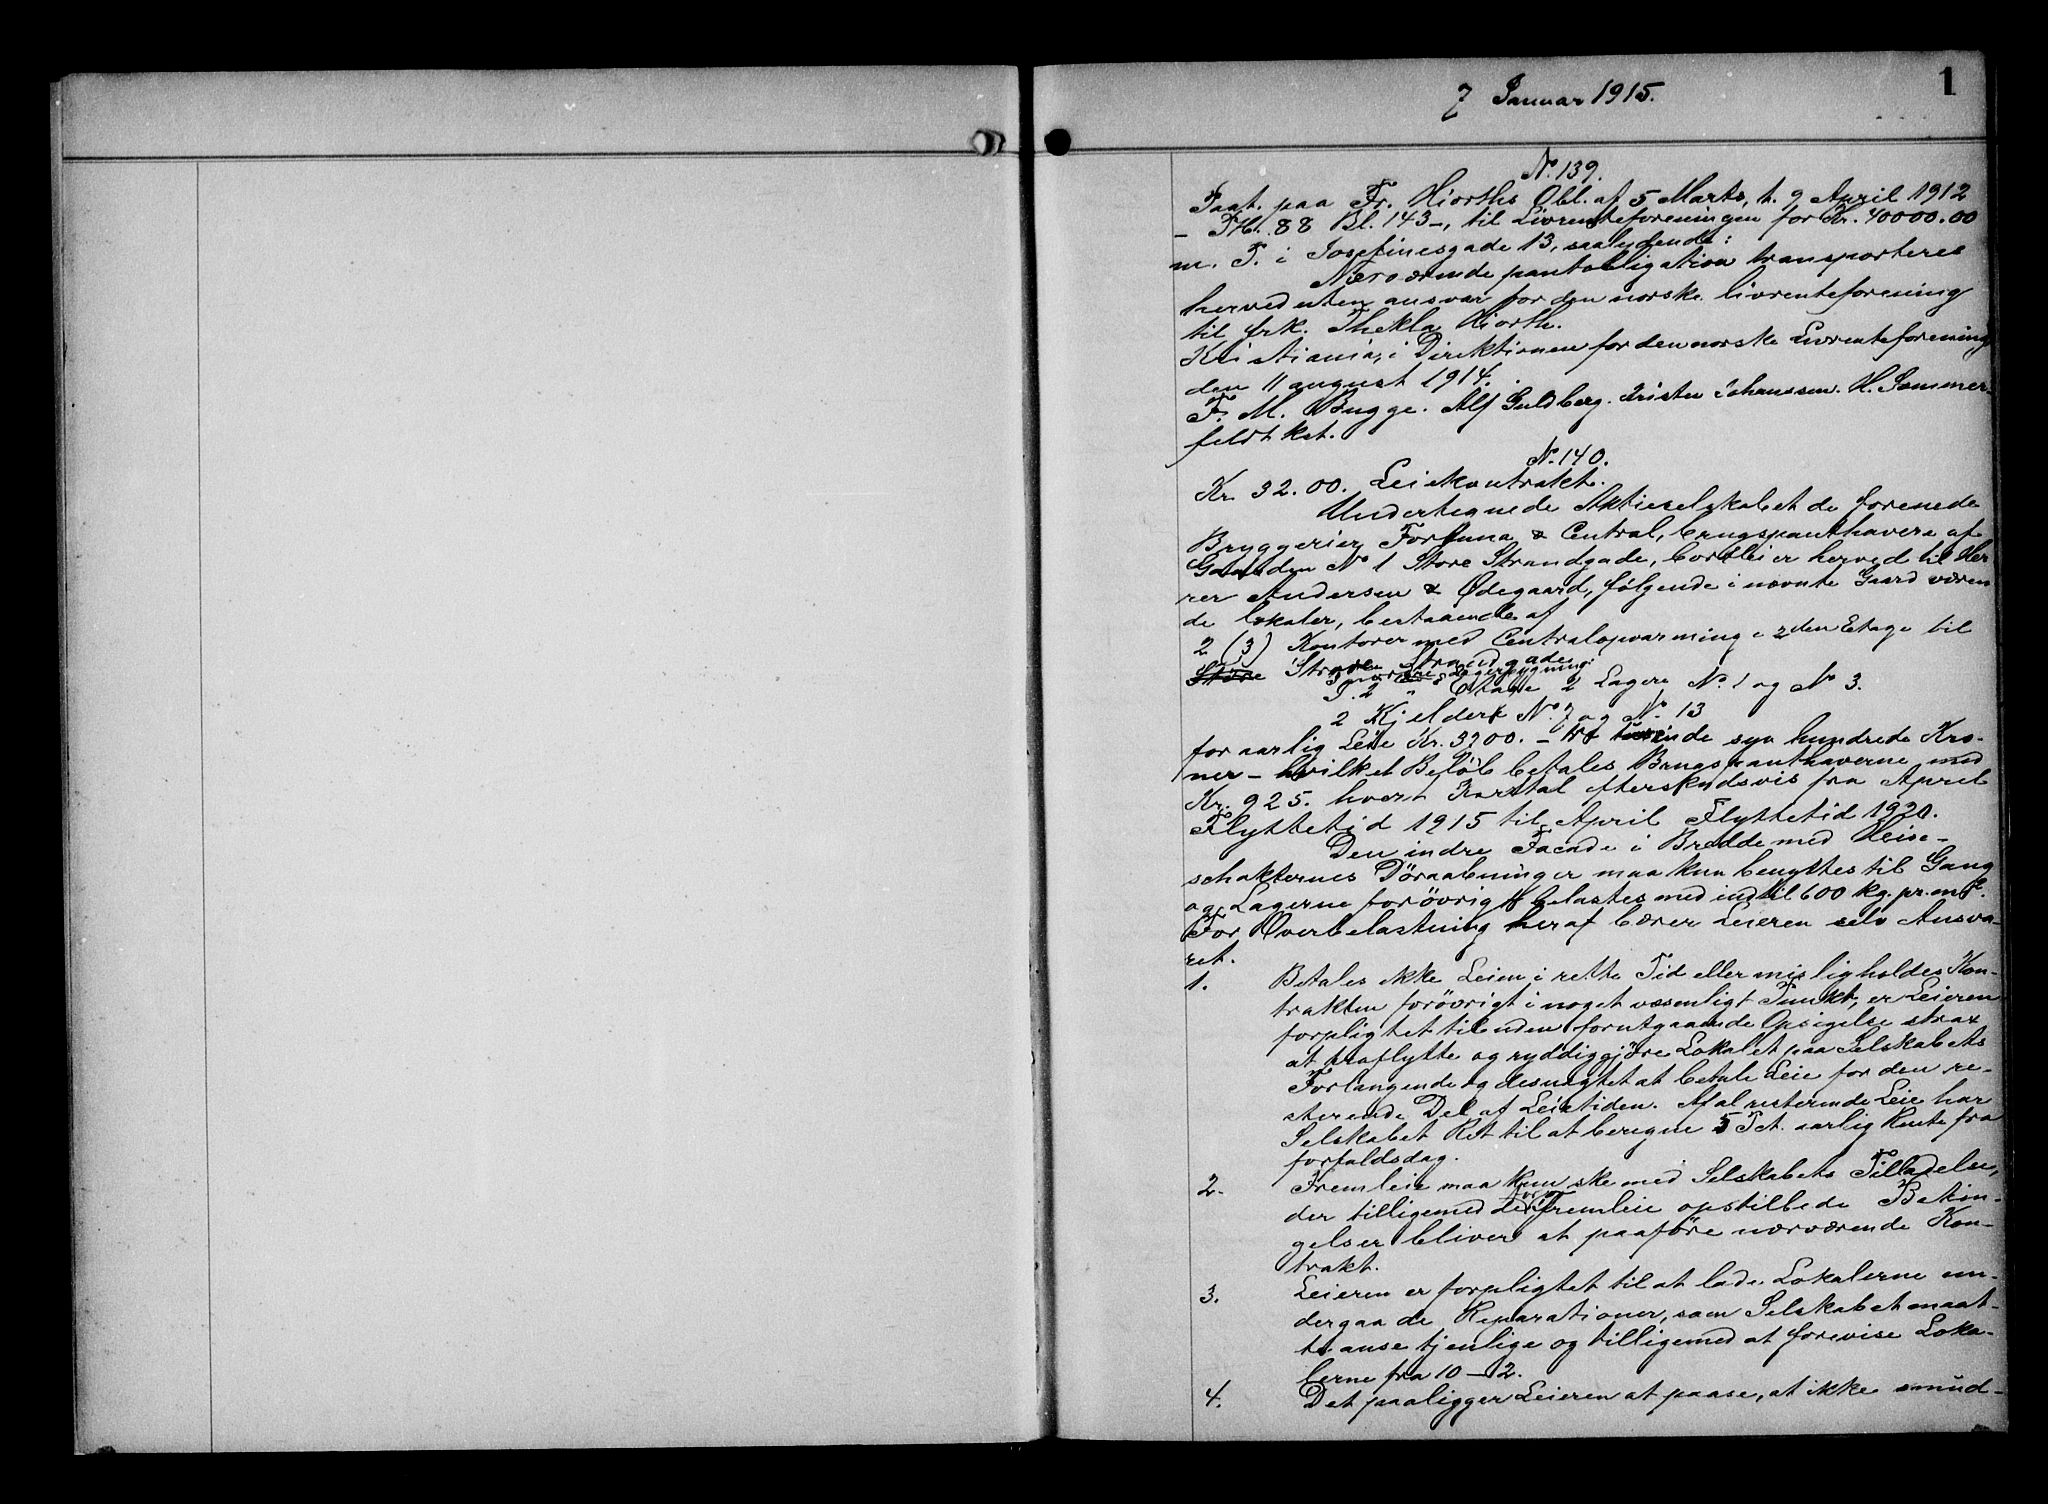 7 Januar 1915.
1
No. 139.
Paat. paa Fr. Hiorths Obl. af 5 Marts, t. 9 April 1912
- PB. 88 Bl. 143 -, til Livrenteforeningen for Kr. 40000.00
m. P. i Josefinesgade 13, saalydende:
Nærværende pantobligation transporteres
herved uten ansvar for den norske livrenteforening
til frk. Thekla Hiorth.
Kristiania, i Direktionen for den norske Livrenteforening
den 11 august 1914.
F. M. Bugge. Alf Guldberg. Kristen Johanssen. H. Sommer-
feldt kst.
No. 140.
Kr. 32.00. Leiekontrakt.
Undertegnede Aktieselskabet de forenede
Bryggerier Fortuna & Central, brugspanthavere af
Gaarden No 1 Store Strandgade, bortleier herved til Her
rer Andersen & Ødegaard, følgende i nævnte Gaard væren
de lokaler, bestaaende af
2 (3) Kontorer med Centralopvarming i 2den Etage til
Store Strandgade
Lagerbygning:
I 2 " Etage 2 Lagere No. 1 og No 3.
2 Kjeldere No. 7 og No. 13
for aarlig Leie Kr. 3700. - tre tusinde syv hundrede Kro-
ner - hvilket Beløb betales Brugspanthaverne med
Kr. 925. hvert Kvartal efterskudsvis fra April
Flyttetid 1915 til April Flyttetid 1920.
Den indre Facade i Bredde med Heise-
schakternes Döraabninger maa kun benyttes til Gang
og Lagerne forövrigt belastes med indtil 600 kg. pr. m2.
For Overbelastning heraf bærer Leieren selv Ansva-
ret.
1. Betales ikke Leien i rette Tid eller misligholdes Kon-
trakten forövrigt i noget væsenligt Punkt, er Leieren
forpligtet til uden forutgaaende Opsigelse strax
at fraflytte og ryddiggjöre Lokalet paa Selskabets
Forlangende og desuagtet at betale Leie for den re-
sterende Del af Leietiden. Af al resterende Leie har
Selskabet Ret til at beregne 5 Pct. aarlig Rente fra
forfaldsdag.
2. Fremleie maa kun ske med Selskabets Tilladelse,
der tilligemed de for Fremleie opstillede Betin-
gelser bliver at paaföre nærværende Kon-
trakt.
3. Leieren er forpligtet til at lade Lokalerne un-
dergaa de Reparationer, som Selskabet maat-
te anse tjenlige og tilligemed at forevise Loka-
lerne fra 10 - 2.
4. Det paaligger Leieren at paase, at ikke smud-